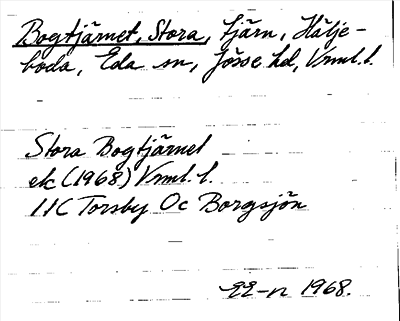 Bogtjärnet, Stora, tjärn, Hälje-
boda, Eda sn, Jösse hd, Vrml. l.
Stora Bogtjärnet
ek (1968) Vrml. l.
11C Torsby Oc Borgsjön
1968.